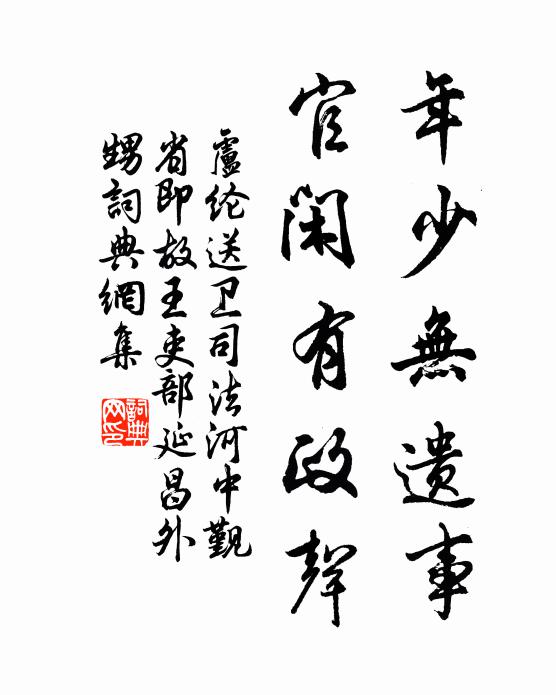 年少無遺事
官閑有政聲
盧纶送卫司法河中觐
省即故王吏部延昌外
甥詞典網集
詞典
网印